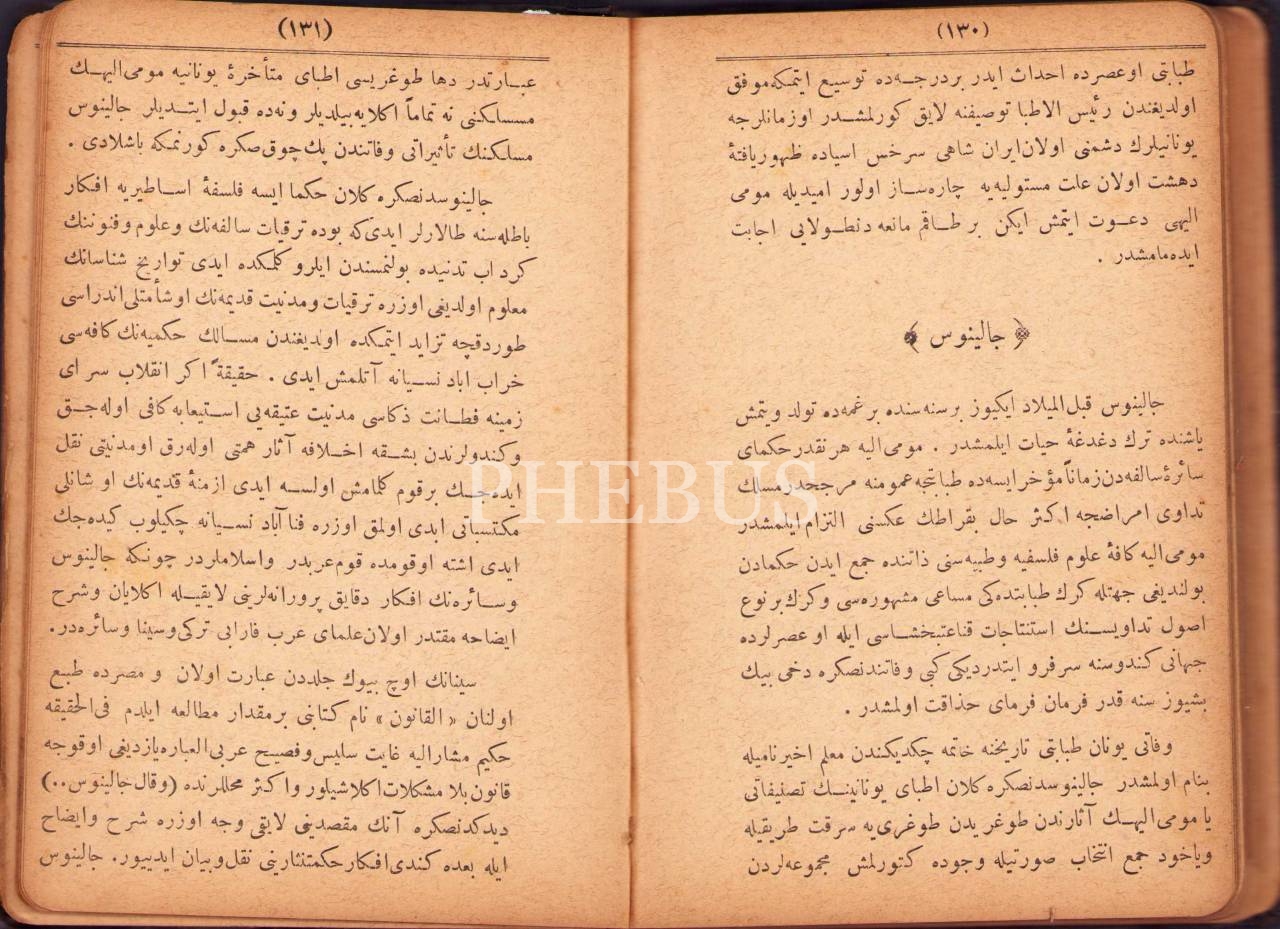 (١٣٠)
طبابتی اوعصرده احداث ایدر بردرجـه‌ده توسیع ایتمکه‌موفق
اولدیغندن رئیس الاطبا توصیفنه لایق کورلمشـدر اوزمانلرجه
یونانیلرك دشمنی اولان‌ایران شاهی سرخس اسیاده ظهوریافتهٔ
دهشت اولان علت مستولیه‌یه چاره‌ساز اولور امیدیله مومی
الیهی دعـوت ایتمش ایکن بر طـاقم مانعه دنطـولایی اجابت
ایده‌مامشدر .
﴿ جالینوس ﴾
جالینوس قبل‌المیلاد ایکیوز برسنه‌سنده برغمه‌ده تولد ویتمش
یاشنده ترك دغدغهٔ حیات ایلمشدر . مومی‌الیه هرنقدرحکمای
سائرهٔ سالفه‌دن‌زماناً مؤخرایسه‌ده طبابتجه عمومنه مرجحدرمسلك
تداوی امراضجه اکثر حال بقراطك عکسنی التزام ایلمشدر
مومی‌الیه کافهٔ علوم فلسفیه وطبیه‌سنی ذاتنده جمع ایدن حکمادن
بولندیغی جهتله کرك طبابتده‌کی مساعی مشهوره‌سی وکرك برنوع
اصول تداویسـنك استنتاجات قناعتبخشاسی ایله او عصرلرده
جهانی کندوسنه سرفرو ایتدردیکی کبی وفاتندنصکره دخی بیك
بشیوز سنه قدر فرمان فرمای حذاقت اولمشدر .
وفاتی یونان طبابتی تاریخنه خاتمه چکدیکندن معلم اخیرنامیله
بنام اولمشدر جالینوسدنصکره کلان اطبای یونانینـك تصنیفاتی
یا مومی‌الیهـك آثارندن طوغریدن طوغری‌یه سرقت طریقیله
ویاخود جمع انتخاب صورتیله وجوده کتورلمش مجموعه‌لردن
(١٣١)
عبـارتدر دها طوغریسی اطبای متأخرهٔ یونانیه مومی‌الیهـك
مسـلکنی نه تماماً اکلایه‌بیلدیلر ونه‌ده قبول ایتـدیلر جالینوس
مسلکنك تأثیراتی وفاتندن پك‌چوق‌صکره کورنمکه باشلادی .
جالینوسدنصکره کلان حکما ایسه فلسفهٔ اسـاطیریه افکار
باطله‌سنه طالارلر ایدی‌که بوده ترقیات سالفه‌نك وعلوم وفنوننك
کرداب تدنیده بولنمسندن ایلرو کلمکده ایدی تواریخ شناسانك
معلوم اولدیغی اوزره ترقیات ومدنیت قدیمه‌نك اوشأمتلی‌اندراسی
طوردقچه تزاید ایتمکده اولدیغندن مسـالك حکمیه‌نك کافه‌سی
خراب اباد نسـیانه آتلمش ایدی . حقیقةً اکر انقلاب سرای
زمینه فطـانت ذکاسی مدنیت عتیقه‌یی اسـتیعابه‌کافی اوله‌جـق
وکندولرندن بشـقه اخـلافه آثار همتی اوله‌رق اومدنیتی نقل
ایده‌جـك برقوم کلمامش اولسـه ایدی ازمنهٔ قدیمه‌نك او شانلی
مکتسباتی ابدی اولمق اوزره فناآباد نسـیانه چکیلوب کیده‌جك
ایدی اشته اوقومده قوم‌عربدر واسلاملردر چونکه جالینوس
وسـائره‌نك افکار دقایق پرورانه‌لرینی لایقیـله اکلایان وشرح
ایضاحه مقتدر اولان‌علمای عرب فارابی ترکی‌وسینا وسائره‌در.
سینانك اوچ بیوك جلددن عبارت اولان و مصرده طبع
اولنان « القانون » نام کتابنی برمقدار مطالعه ایلدم فی‌الحقیقه
حکیم مشارالیه غایت سلیس‌وفصیح عربی‌العباره‌یازدیغی اوقوجه
قانون‌بلا مشکلات‌اکلاشیلور واکثر محللرنده (وقال‌جالینوس..)
دیدکدنصکره آنك مقصدینی لایقی وجه اوزره شرح وایضاح
ایله بعده کندی‌افکارحکمتنثارینی نقل‌وبیان ایدییور. جالینوس
PHEBUS